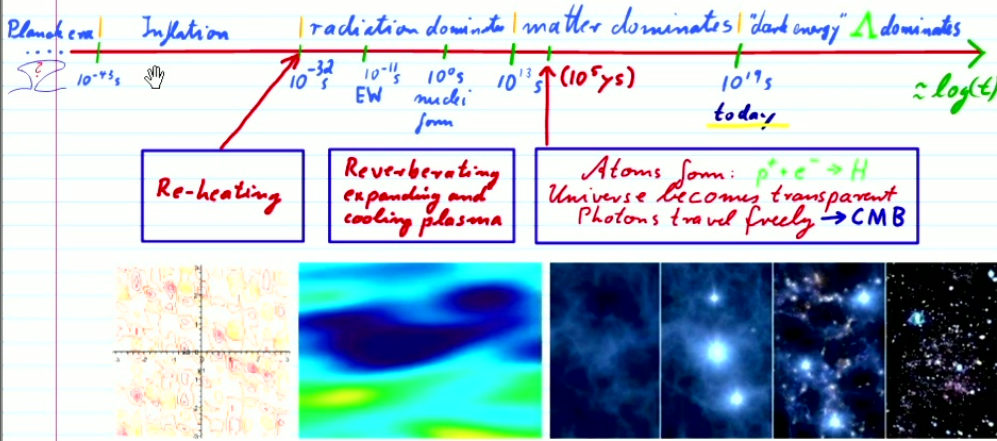 Planck era | Inflation | radiation dominates | matter dominates | "dark energy" Λ dominates
?
10⁻⁴³s 10⁻³²s 10⁻¹¹s 10⁰s 10¹³s (10⁵ys) 10¹⁹s ≈ log(t)
EW nuclei today
form
Re-heating
Reverberating
expanding and
cooling plasma
Atoms form: p⁺ + e⁻ → H
Universe becomes transparent
Photons travel freely → CMB